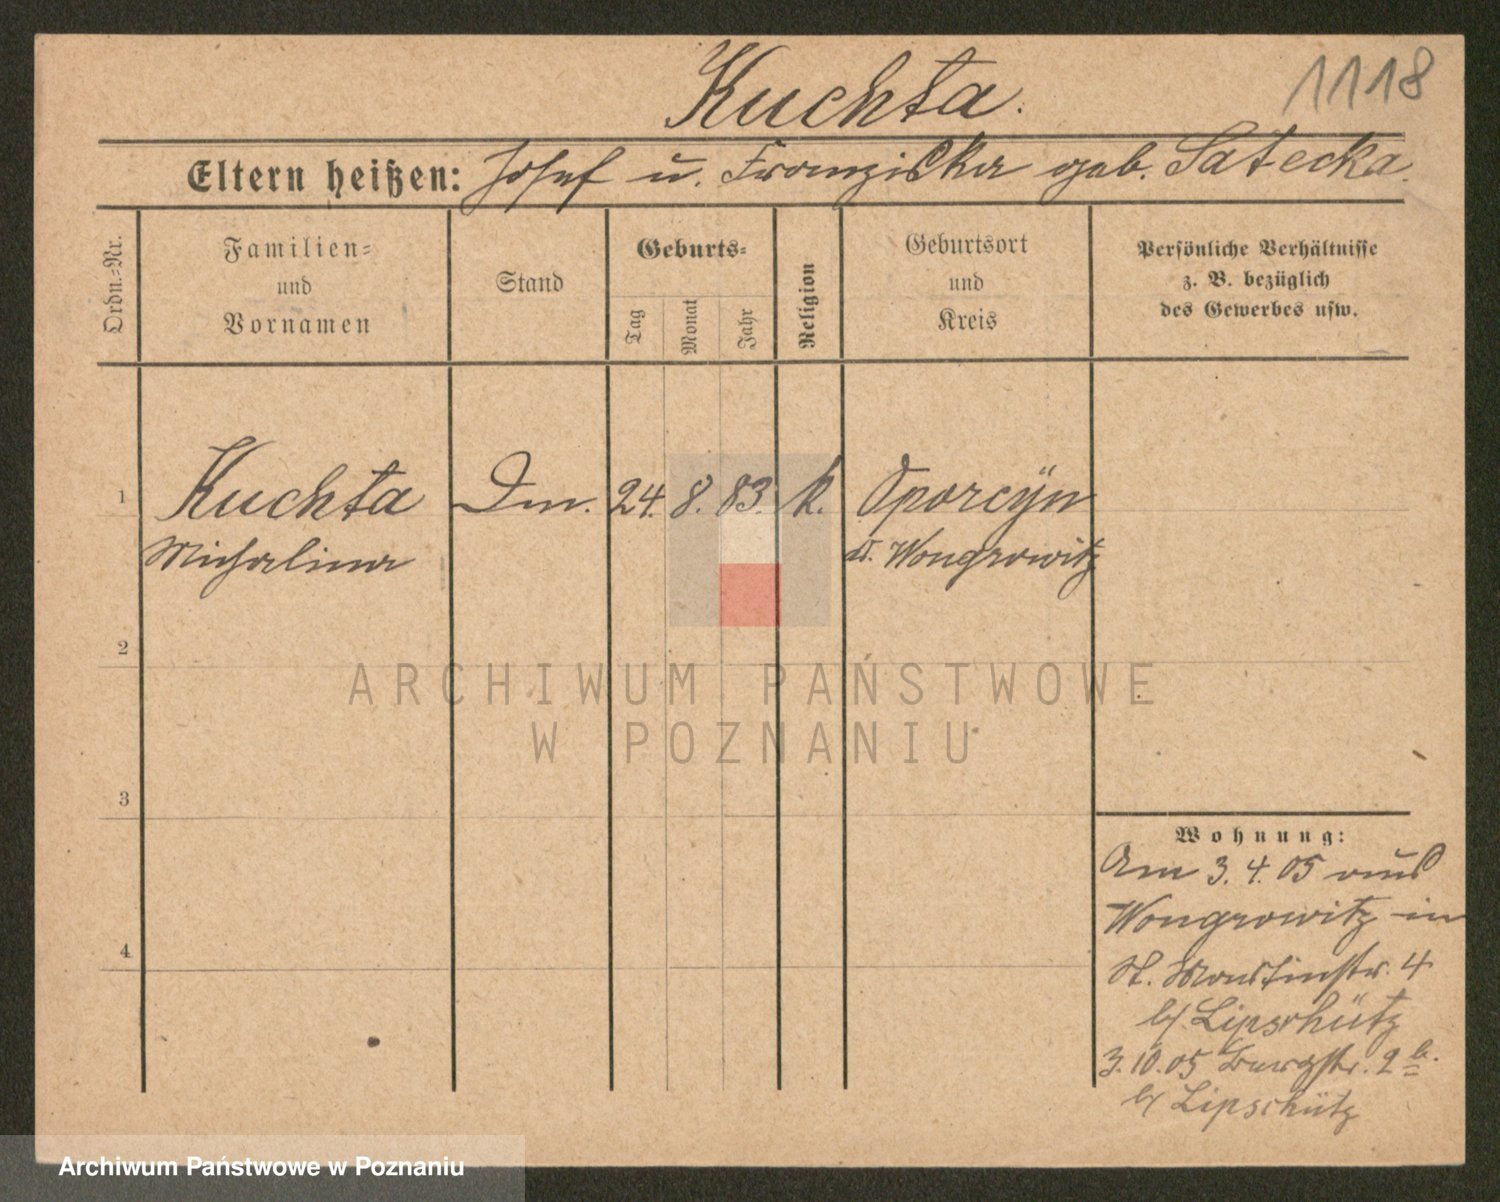 Kuchta.
1118
Eltern heißen: Josef u. Franziska geb. Satecka.
Ordn.=Nr.
Familien=
und
Vornamen
Stand
Geburts=
Tag
Monat
Jahr
Religion
Geburtsort
und
Kreis
Persönliche Verhältnisse
z. B. bezüglich
des Gewerbes usw.
1 Kuchta Dm. 24. 8. 83. k. Oporcÿn
Michalina Wongrowitz
2
3
4
Wohnung:
Am 3. 4. 05 aus
Wongrowitz in
St. Martinstr. 4
b/. Lipschütz
3. 10. 05 Burgstr. 2
b/ Lipschütz
ARCHIWUM PAŃSTWOWE
W POZNANIU
Archiwum Państwowe w Poznaniu